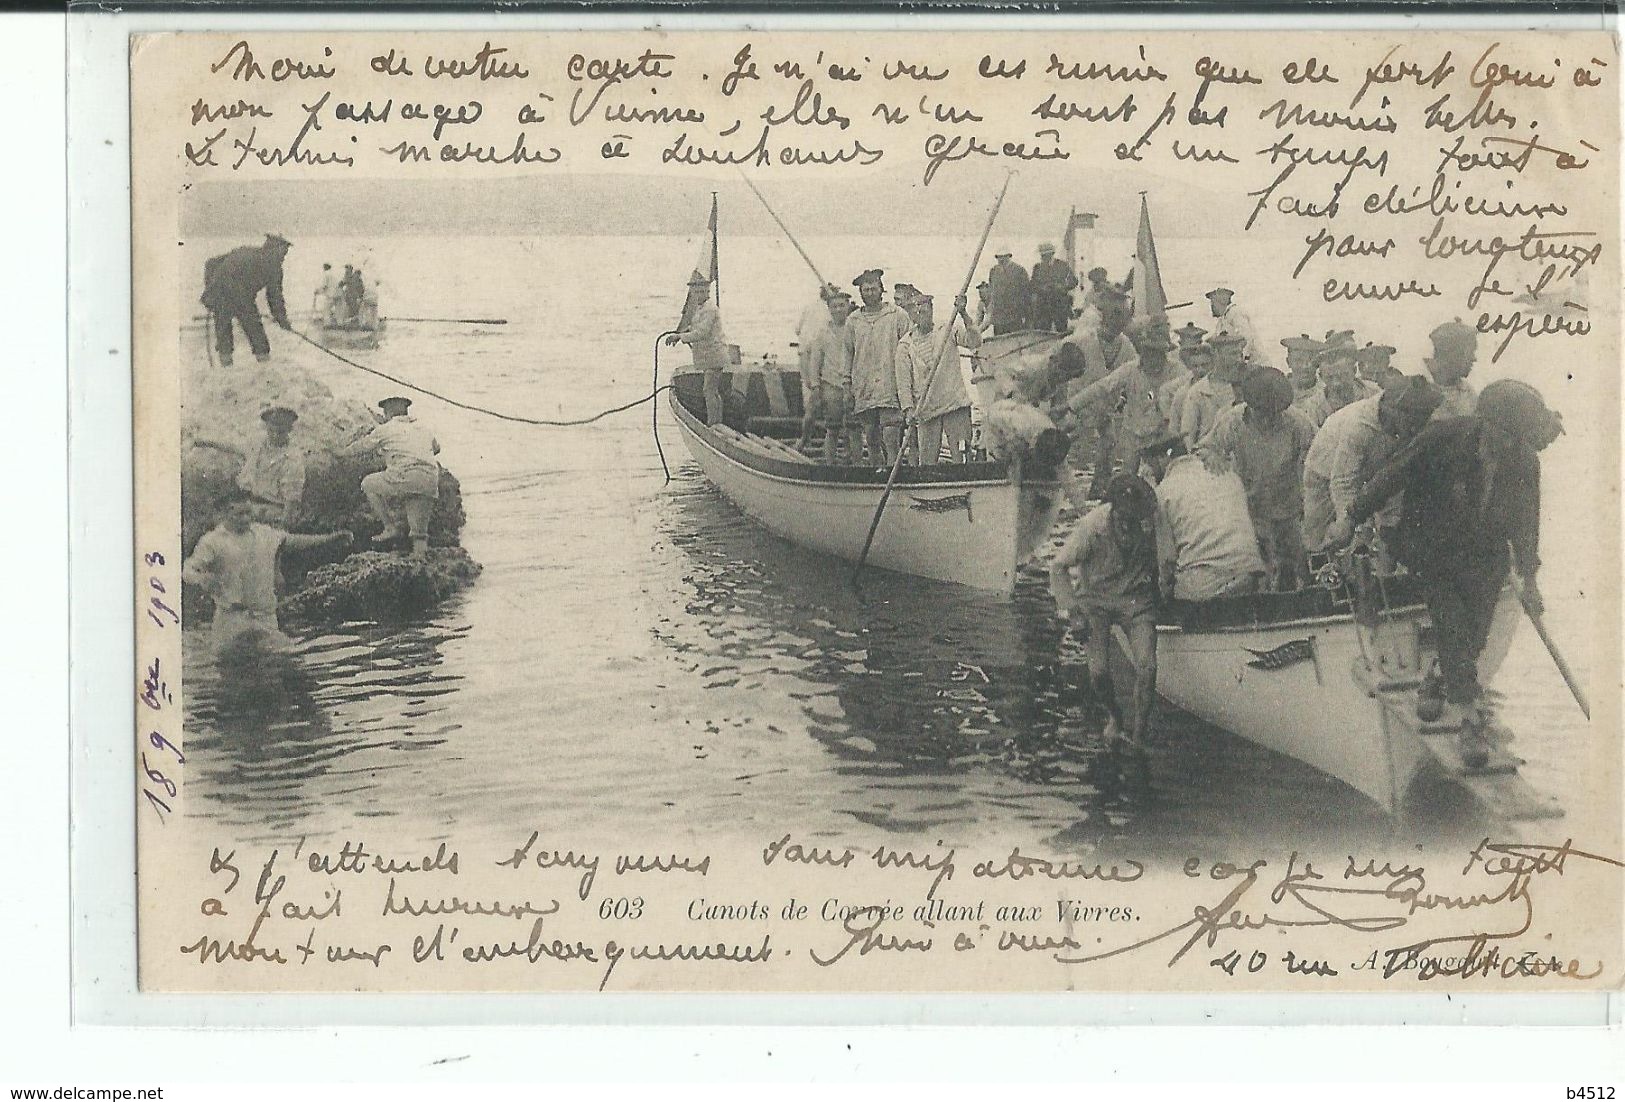 Merci de votre carte. Je n'ai vu ces ruines que de fort loin à
mon passage à Vienne, elles n'en sont pas moins belles.
Le tennis marche à Louhans grâce à un temps tout à
fait délicieux
pour longtemps
encore je l'
espère
18 9bre 1903
& j'attends toujours sans impatience car je suis tout
à fait heureux
603 Canots de Corvée allant aux Vivres.
mon tour d'embarquement. Amis à vous.
40 rue Voltaire
A. Bougault
b4512